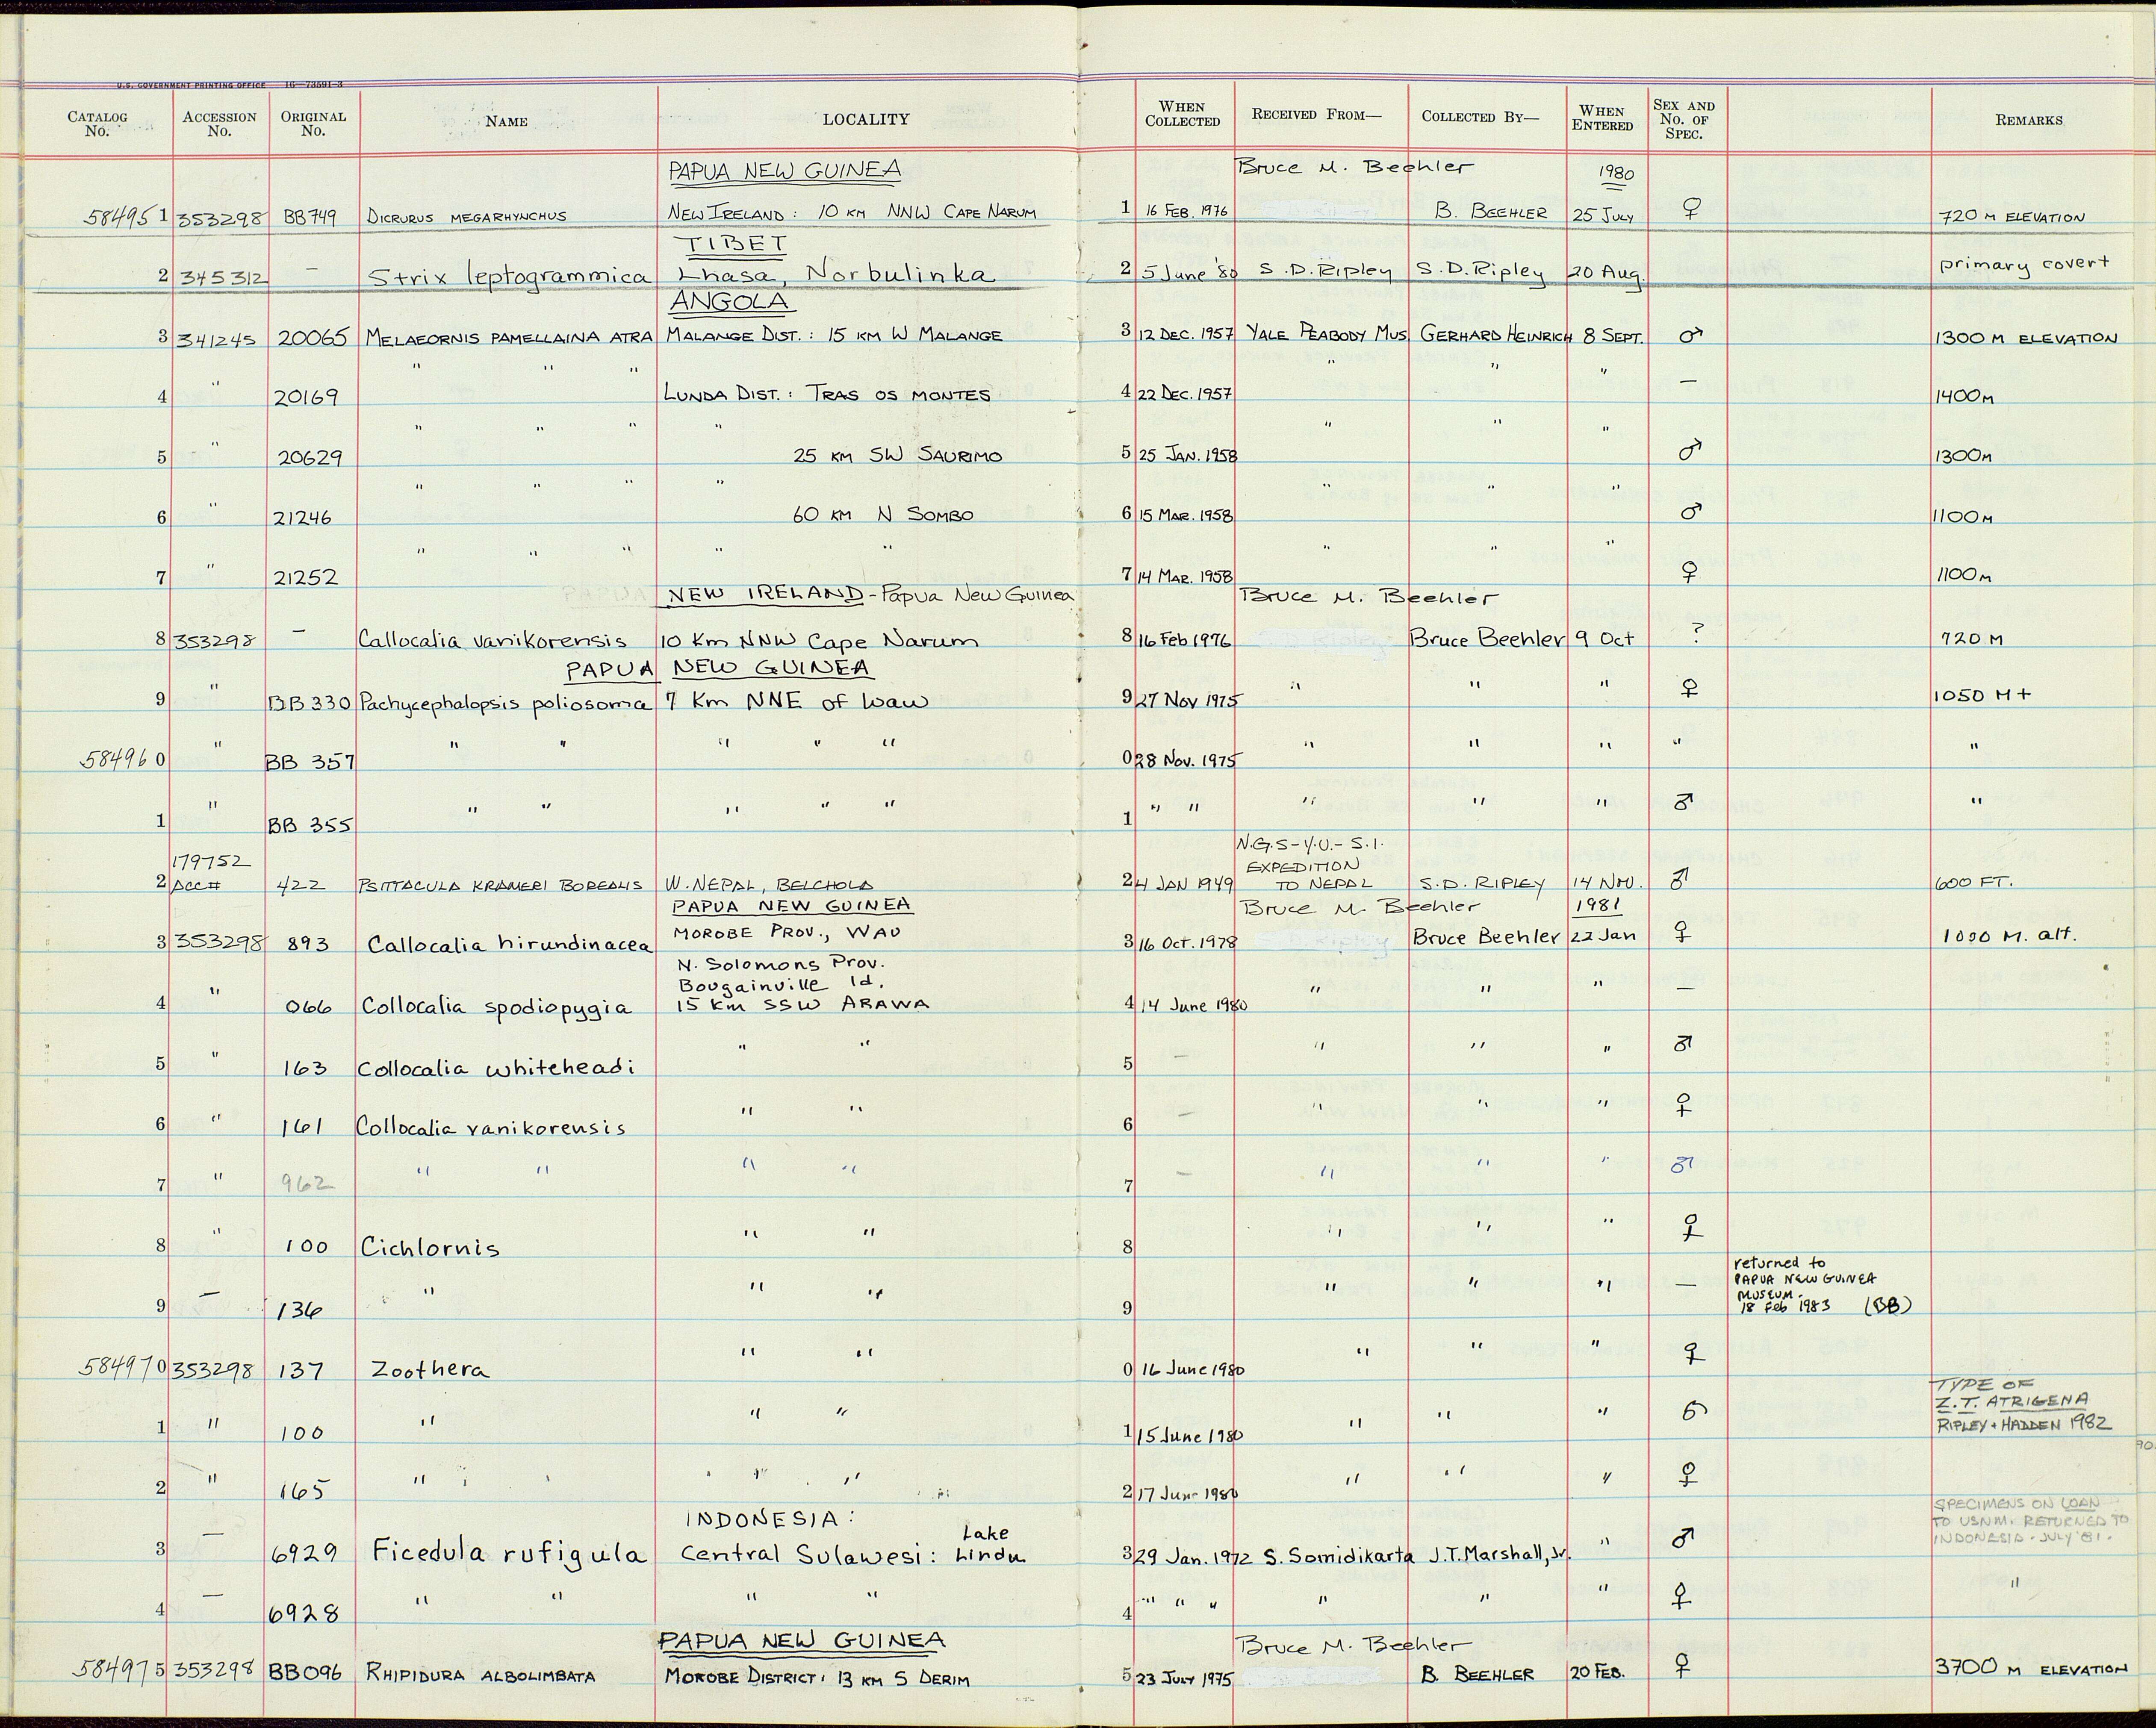 U.S. GOVERNMENT PRINTING OFFICE 16—73591-3
CATALOG No. ACCESSION No. ORIGINAL No. NAME LOCALITY WHEN COLLECTED RECEIVED FROM— COLLECTED BY— WHEN ENTERED SEX AND No. OF SPEC. REMARKS
PAPUA NEW GUINEA Bruce M. Beehler 1980
584951 353298 BB749 DICRURUS MEGARHYNCHUS NEW IRELAND: 10 KM NNW CAPE NARUM 1 16 FEB. 1976 B. BEEHLER 25 JULY ♀ 720 M ELEVATION
TIBET
2 345312 — Strix leptogrammica Lhasa, Norbulinka 2 5 June '80 S.D. Ripley S.D. Ripley 20 Aug. primary covert
ANGOLA
3 341245 20065 MELAEORNIS PAMELLAINA ATRA MALANGE DIST.: 15 KM W MALANGE 3 12 DEC. 1957 YALE PEABODY MUS GERHARD HEINRICH 8 SEPT. ♂ 1300 M ELEVATION
4 " 20169 " " " LUNDA DIST.: TRAS OS MONTES 4 22 DEC. 1957 " " " — 1400 M
5 " 20629 " " " " 25 KM SW SAURIMO 5 25 JAN. 1958 " " " ♂ 1300 M
6 " 21246 " " " " 60 KM N SOMBO 6 15 MAR. 1958 " " " ♂ 1100 M
7 " 21252 " " " " " 7 14 MAR. 1958 " " " ♀ 1100 M
NEW IRELAND - Papua New Guinea Bruce M. Beehler
8 353298 — Callocalia vanikorensis 10 Km NNW Cape Narum 8 16 Feb 1976 Bruce Beehler 9 Oct ? 720 M
PAPUA NEW GUINEA
9 " BB 330 Pachycephalopsis poliosoma 7 Km NNE of Wau 9 27 Nov 1975 " " " ♀ 1050 M+
584960 " BB 357 " " " " " 0 28 Nov. 1975 " " " " "
1 " BB 355 " " " " " 1 " " " " " ♂ "
179752 N.G.S-Y.U.-S.I.
EXPEDITION
2 ACC# 422 PSITTACULA KRAMERI BOREALIS W. NEPAL, BELCHOLA 2 4 JAN 1949 TO NEPAL S.D. RIPLEY 14 NOV. ♂ 600 FT.
PAPUA NEW GUINEA Bruce M. Beehler 1981
3 353298 893 Callocalia hirundinacea MOROBE PROV., WAU 3 16 Oct. 1978 Bruce Beehler 22 Jan ♀ 1000 M. alt.
N. Solomons Prov.
Bougainville Id.
4 " 066 Collocalia spodiopygia 15 Km SSW ARAWA 4 14 June 1980 " " " —
5 " 163 Collocalia whiteheadi " " 5 — " " " ♂
6 " 161 Collocalia vanikorensis " " 6 — " " " ♀
7 " 962 " " " " 7 — " " " ♂
8 " 100 Cichlornis " " 8 " " " ♀
returned to
PAPUA NEW GUINEA
MUSEUM.
9 — 136 " " " 9 " " " — 18 Feb 1983 (BB)
584970 353298 137 Zoothera " " 0 16 June 1980 " " " ♀
TYPE OF
Z.T. ATRIGENA
1 " 100 " " " 1 15 June 1980 " " " ♂ RIPLEY + HADDEN 1982
2 " 165 " " " 2 17 June 1980 " " " ♀
INDONESIA: SPECIMENS ON LOAN
Lake TO USNM. RETURNED TO
3 — 6929 Ficedula rufigula Central Sulawesi: Lindu 3 29 Jan. 1972 S. Somidikarta J.T. Marshall, Jr. " ♂ INDONESIA - JULY '81.
4 — 6928 " " " " 4 " " " " " " ♀ "
PAPUA NEW GUINEA Bruce M. Beehler
584975 353298 BB096 RHIPIDURA ALBOLIMBATA MOROBE DISTRICT: 13 KM S DERIM 5 23 JULY 1975 B. BEEHLER 20 FEB. ♀ 3700 M ELEVATION